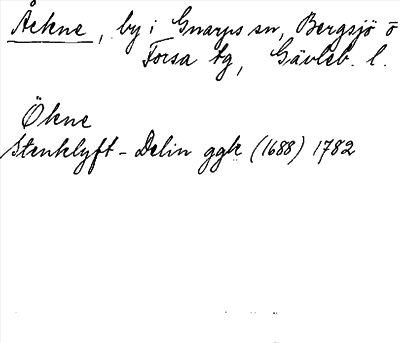 Åckne, by i Gnarps sn, Bergsjö o
Forsa tg, Gävleb. l.
Ökne
Stenklyft - Delin ggk (1688) 1782